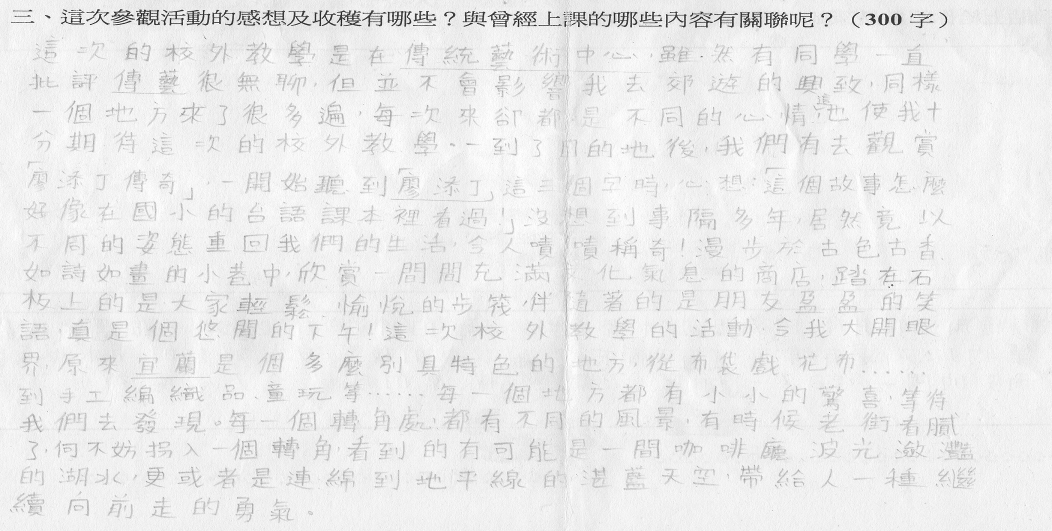 三、這次參觀活動的感想及收穫有哪些？與曾經上課的哪些內容有關聯呢？（300 字）
這次的校外教學是在傳統藝術中心，雖然有同學一直
批評傳藝很無聊，但並不會影響我去郊遊的興致，同樣
一個地方來了很多遍，每次來卻都是不同的心情，這也使我十
分期待這次的校外教學。一到了目的地後，我們有去觀賞
「廖添丁傳奇」，一開始聽到「廖添丁」這三個字時，心想：「這個故事怎麼
好像在國小的台語課本裡看過！」沒想到事隔多年，居然竟以
不同的姿態重回我們的生活，令人嘖嘖稱奇！漫步於古色古香、
如詩如畫的小巷中，欣賞一間間充滿文化氣息的商店，踏在石
板上的是大家輕鬆、愉悅的步筏，伴隨著的是朋友盈盈的笑
語，真是個悠閒的下午！這次校外教學的活動，令我大開眼
界，原來宜蘭是個多麼別具特色的地方，從布袋戲、花布……
到手工編織品、童玩等……，每一個地方都有小小的驚喜，等待
我們去發現。每一個轉角處，都有不同的風景，有時候老街看膩
了，何不妨拐入一個轉角，看到的有可能是一間咖啡廳、波光瀲灩
的湖水，更或者是連綿到地平線的湛藍天空，帶給人一種繼
續向前走的勇氣。